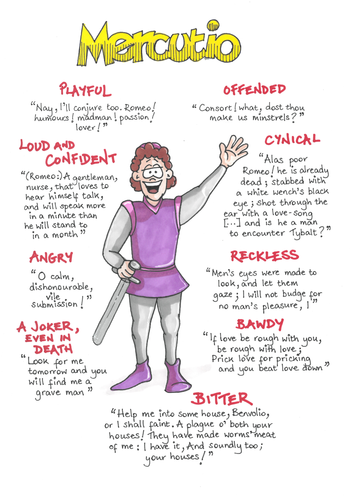 Mercutio
PLAYFUL
"Nay, I'll conjure too. Romeo!
humours! madman! passion!
lover!"
OFFENDED
"Consort! what, dost thou
make us minstrels?"
LOUD AND
CONFIDENT
"(Romeo:) A gentleman,
nurse, that loves to
hear himself talk,
and will speak more
in a minute than
he will stand to
in a month"
CYNICAL
"Alas poor
Romeo! he is already
dead; stabbed with
a white wench's black
eye; shot through the
ear with a love-song
[...] and is he a man
to encounter Tybalt?"
ANGRY
"O calm,
dishonourable,
vile
submission!"
RECKLESS
"Men's eyes were made to
look, and let them
gaze; I will not budge for
no man's pleasure, I"
A JOKER,
EVEN IN
DEATH
"Look for me
tomorrow and you
will find me a
grave man"
BAWDY
"If love be rough with you,
be rough with love;
Prick love for pricking
and you beat love down"
BITTER
"Help me into some house, Benvolio,
or I shall faint. A plague o' both your
houses! They have made worms' meat
of me: I have it, And soundly too;
your houses!"